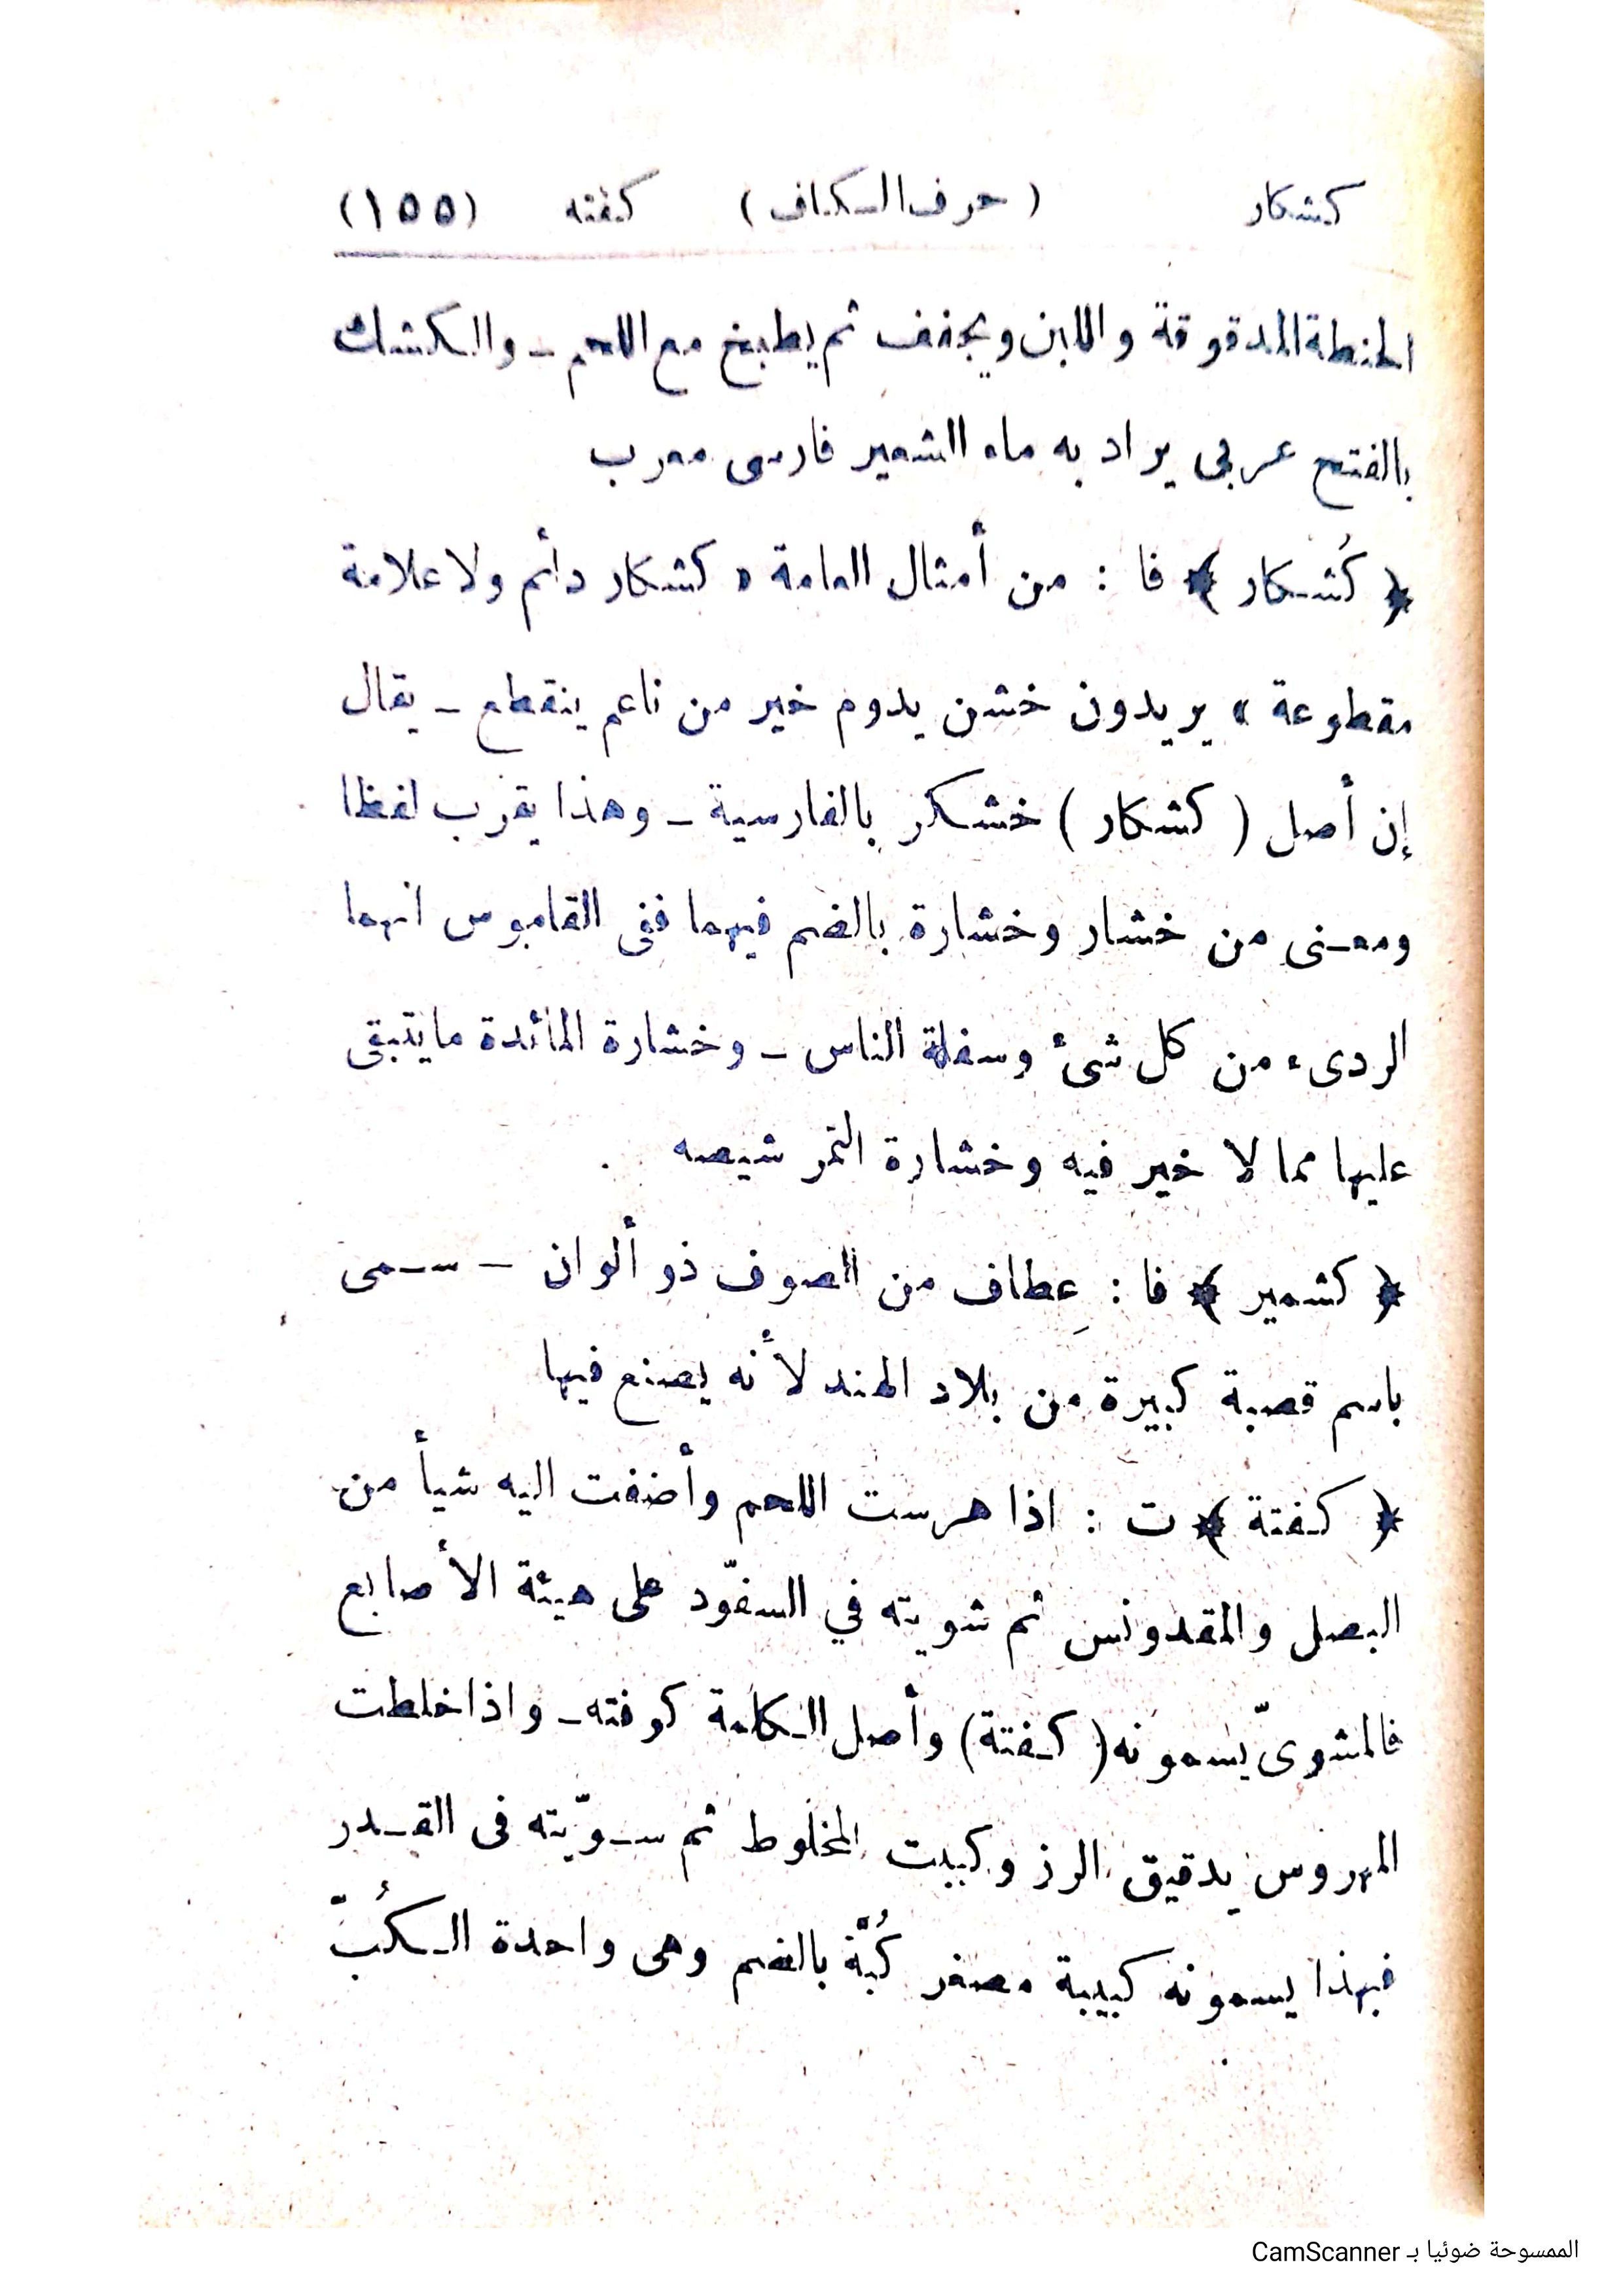 كشكار ( حرف الكاف ) كفته (١٥٥)
الحنطة المدقوقة واللبن ويجفف ثم يطبخ مع اللحم ـ والكشك
بالفتح عربى يراد به ماء الشعير فارسى معرب
﴿ كُشكار ﴾ فا : من أمثال العامة « كشكار دائم ولا علامة
مقطوعة » يريدون خشن يدوم خير من ناعم ينقطع ـ يقال
إن أصل ( كشكار ) خشكر بالفارسية ـ وهذا يقرب لفظا
ومعنى من خشار وخشارة بالضم فيهما ففى القاموس انهما
الردىء من كل شئ وسفلة الناس ـ وخشارة المائدة مايتبقى
عليها مما لا خير فيه وخشارة التمر شيصه
﴿ كشمير ﴾ فا : عِطاف من الصوف ذو ألوان ـ سمى
باسم قصبة كبيرة من بلاد الهند لأنه يصنع فيها
﴿ كفتة ﴾ ت : اذا هرست اللحم وأضفت اليه شيأ من
البصل والمقدونس ثم شويته في السفّود على هيئة الأصابع
فالمشوىّ يسمونه ( كفتة ) وأصل الكلمة كوفته ـ واذا خلطت
المهروس بدقيق الرز وكببت المخلوط ثم سوّيته فى القدر
فبهذا يسمونه كبيبة مصغر كُبَّة بالضم وهى واحدة الكُبّ
الممسوحة ضوئيا بـ CamScanner